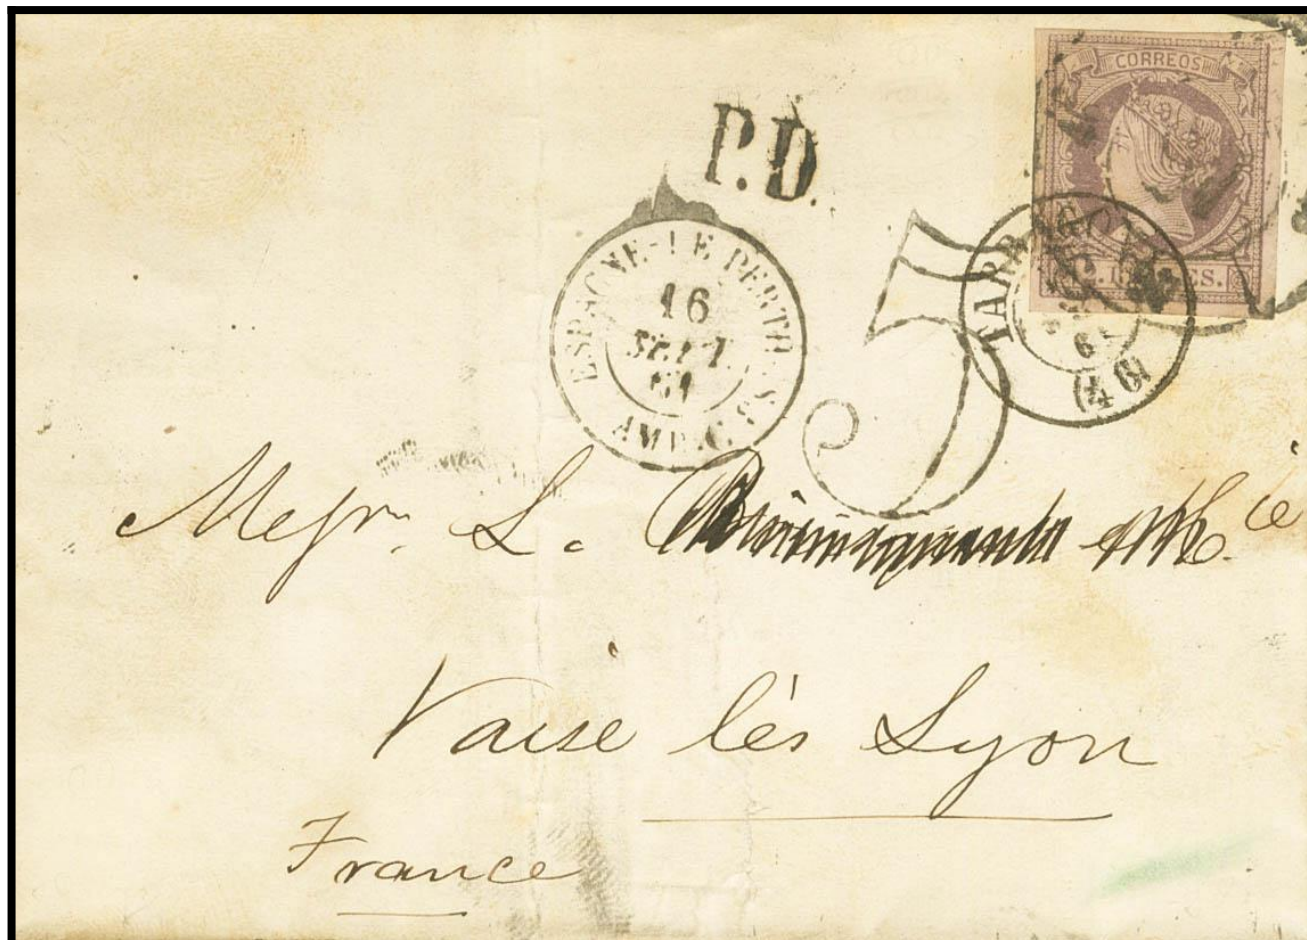 CORREOS
P.D.
ESPAGNE - LE PERTHUS
16
SEPT.
61
AMB. C.
5
TARRAGONA
(19 4)
Messrs. L.
Cie
Vaise lès Lyon
France